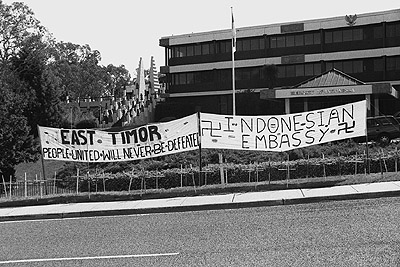 EAST. TIMOR
PEOPLE·UNITED·WILL·NEVER·BE·DEFEATED
INDONESIAN
EMBASSY